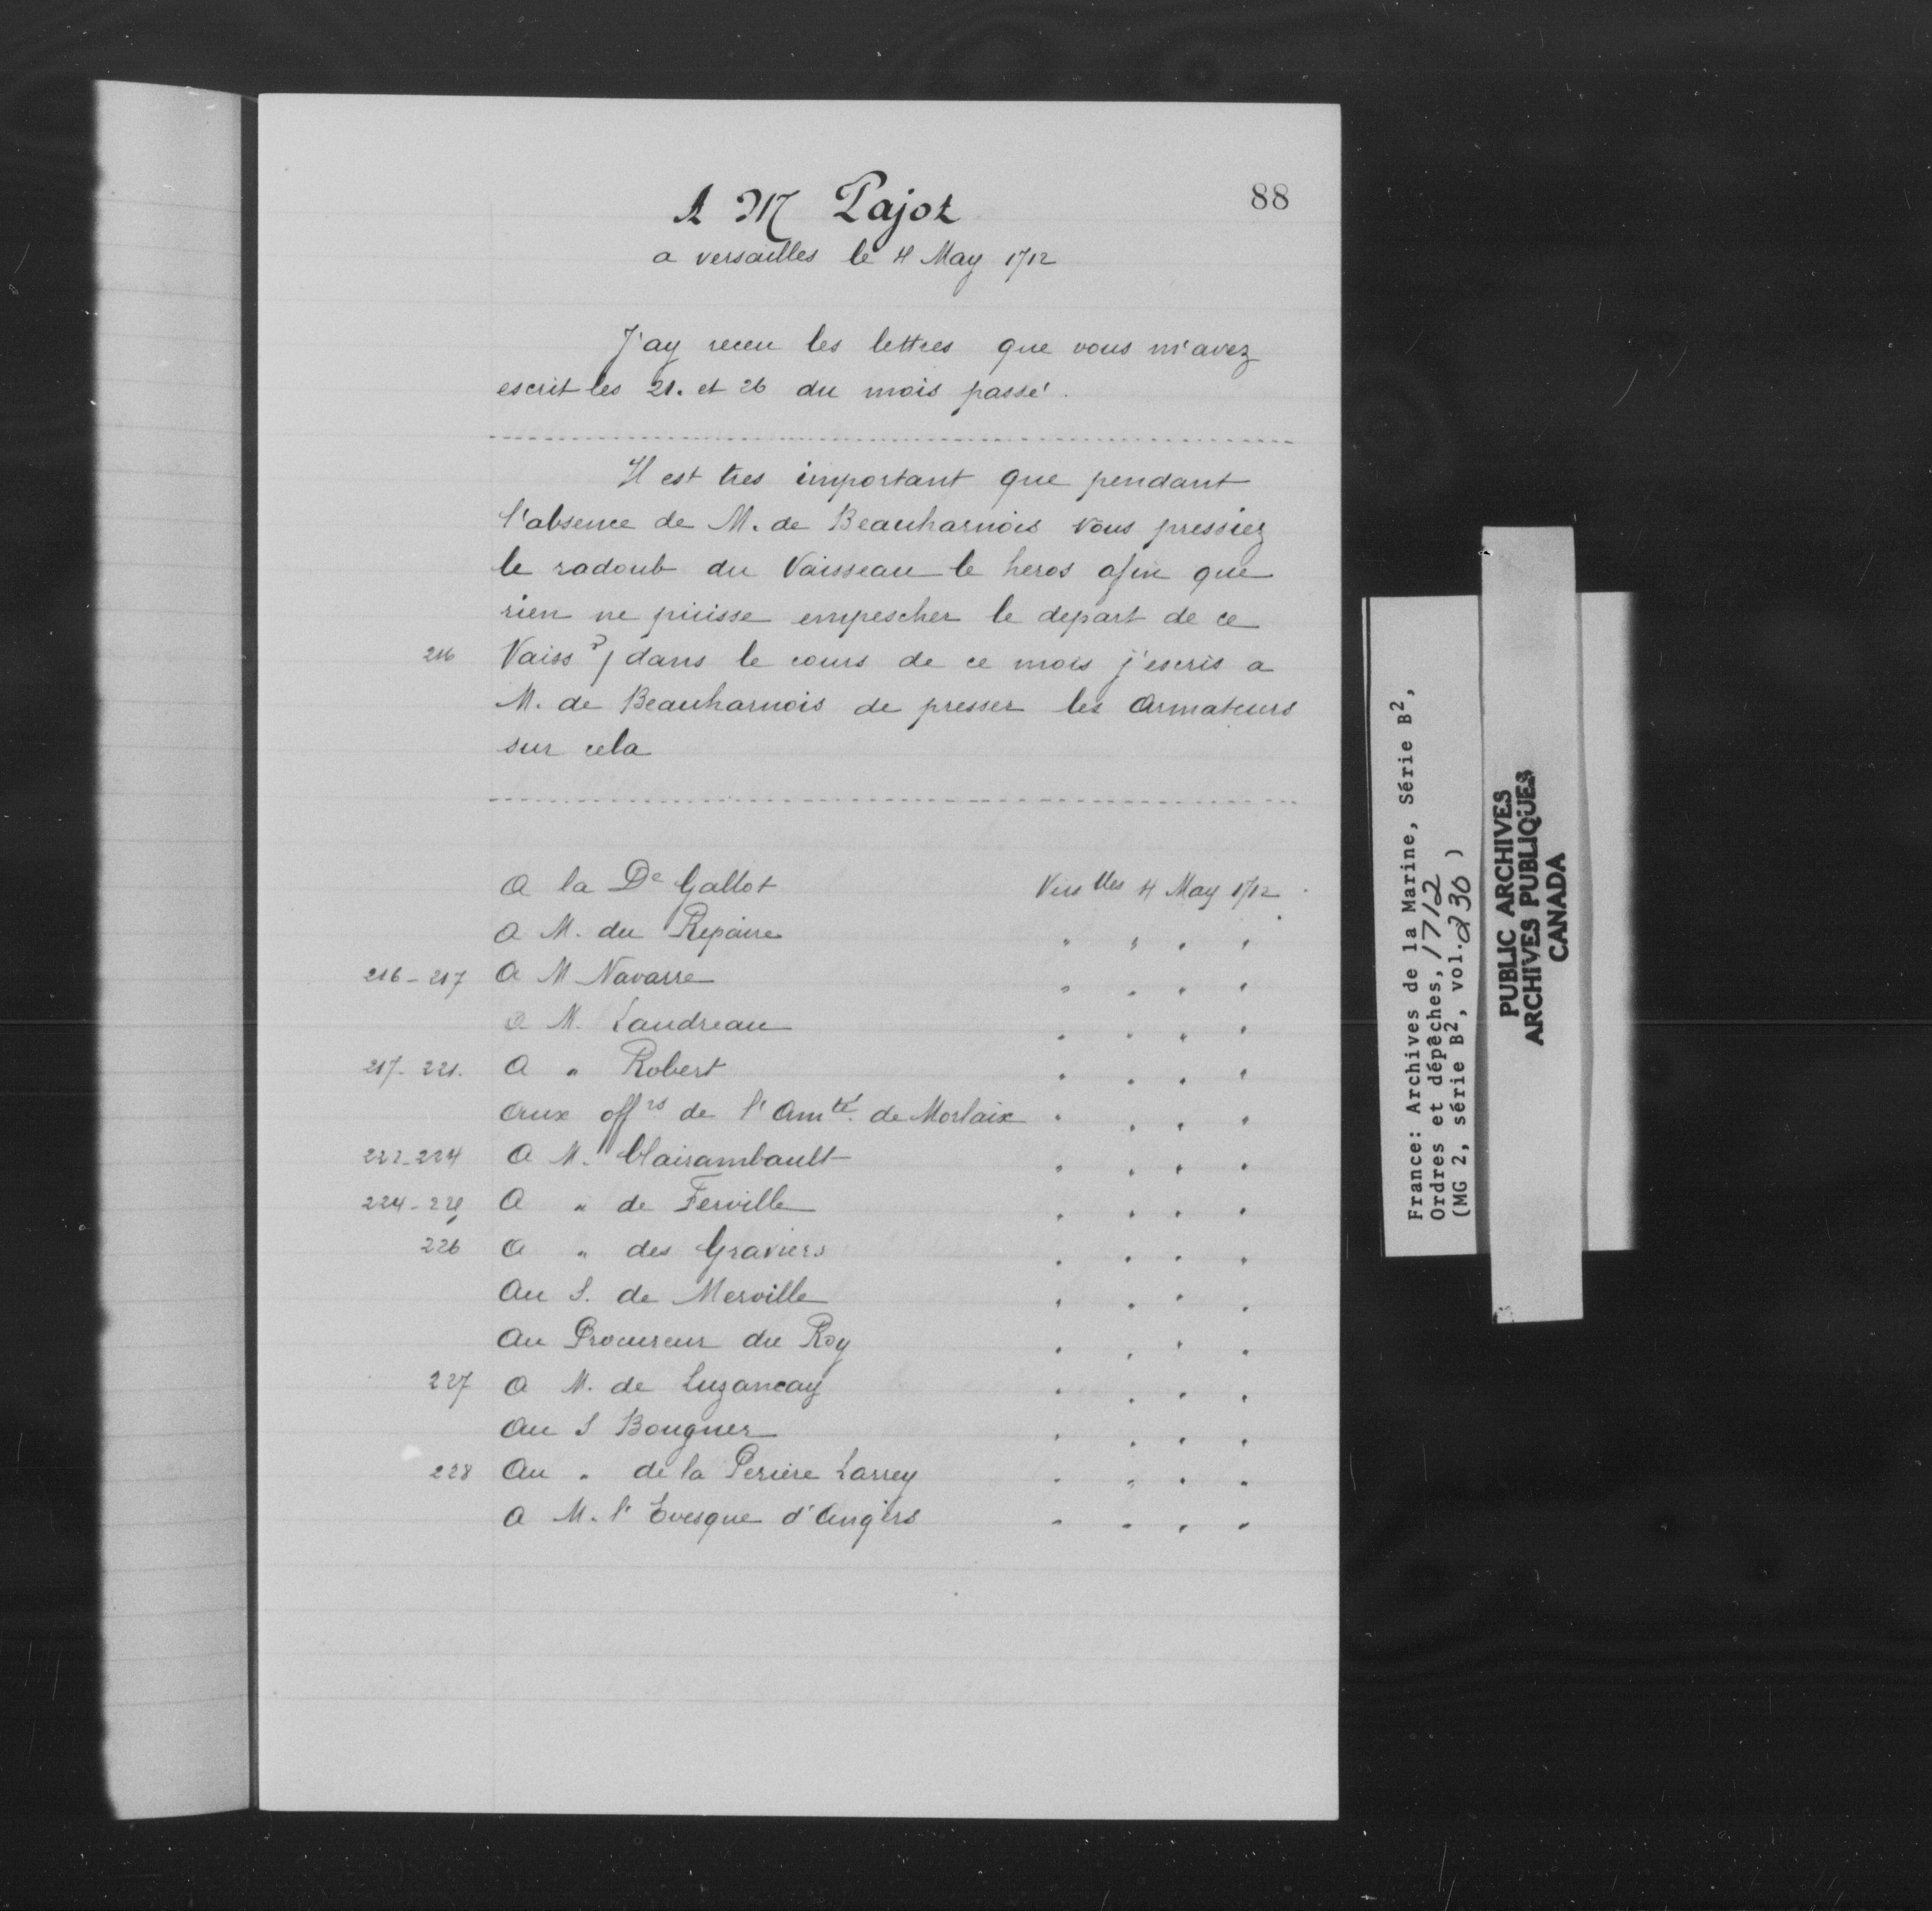 88
A M Pajot
a versailles le 4 May 1712
J'ay receu les lettres que vous m'avez
escrit les 21. et 26 du mois passé.
Il est tres important que pendant
l'absence de M. de Beauharnois vous pressiez
le radoub du Vaisseau le heros afin que
rien ne puisse empescher le depart de ce
216 Vaiss / dans le cours de ce mois j'escris a
M. de Beauharnois de presser les Armateurs
sur cela
A la De Gallot Verslles 4 May 1712
A M. du Repaire " " " "
216-217 A M Navarre " " " "
A M. Landreau " " " "
217-221. A " Robert " " " "
Aux offrs de l'Amté de Morlaix " " " "
222-224 A M. Clairambault " " " "
224- A " de Ferville " " " "
226 A " des Graviers " " " "
Au S. de Merville " " " "
Au Procureur du Roy " " " "
227 A M. de Luzancay " " " "
Au S Bouguer " " " "
228 Au " de la Periere Larrey " " " "
A M. l'Evesque d'Angers " " " "
France: Archives de la Marine, Série B2,
Ordres et dépêches, 1712
(MG 2, série B2, vol. 230)
PUBLIC ARCHIVES
ARCHIVES PUBLIQUES
CANADA